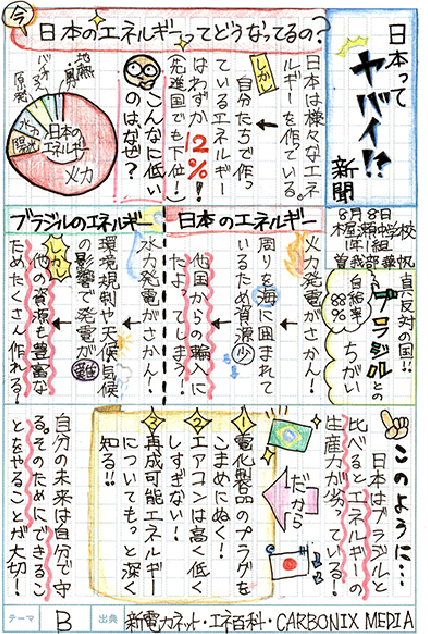 日本って
ヤバイ!?
新聞
8月8日
木屋瀬中学校
1年1組
曽我部華帆
今
日本のエネルギーってどうなってるの?
日本は様々なエネ
ルギーを作っている。
しかし
自分たちで作っ
ているエネルギー
はわずか12%!
(先進国でも下位!)
こんなに低い
のはなぜ?
日本の
エネルギー
火力
水力
太陽光
バイオマス
風力
地熱
原発
真反対の国!!
ブラジルとの
ちがい
自給率
88%
日本のエネルギー
火力発電がさかん!
周りを海に囲まれて
いるため資源少
他国からの輸入に
たよってしまう!
ブラジルのエネルギー
水力発電がさかん!
環境規制や天候・気候
の影響で発電が難
しかし
他の資源も豊富な
ためたくさん作れる!
このように…
日本はブラジルと
比べるとエネルギーの
生産力が劣っている!
だから
1 電化製品のプラグを
こまめにぬく!
2 エアコンは高く低く
しすぎない!
3 再成可能エネルギー
についてもっと深く
知る!!
自分の未来は自分で守
る。そのためにできるこ
とをやることが大切!
テーマ B 出典 新電力ネット・エネ百科・CARBONIX MEDIA